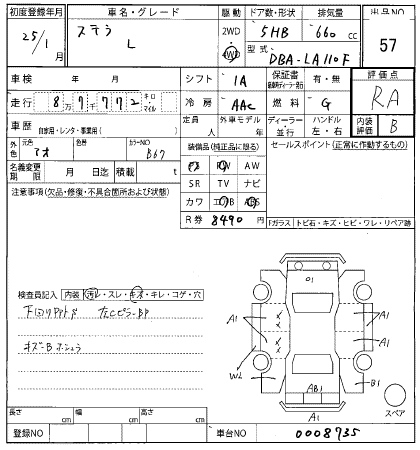 初度登録年月 車名・グレード 駆動 ドア数・形状 排気量 出品NO
25/1月 ステラ L 2WD 4WD 5HB 660 cc 57
型式 DBA-LA110F
車検 年 月 シフト IA 保証書 有・無 評価点
走行 8万7千772 キロ・マイル 冷房 AAC 燃料 G RA
車歴 自家用・レンタ・事業用( ) 定員 外車モデル 年 ディーラー・並行 ハンドル 左・右 内装評価 B
外色 元色 アオ 色替 カラーNO B67 装備品(純正品に限る) セールスポイント(正常に作動するもの)
名義変更期限 月 日迄 積載 t
PS PW AW
SR TV ナビ
注意事項(欠品・修復・不具合箇所および状態) カワ エアB ABS
R券 8490円
Fガラス トビ石・キズ・ヒビ・ワレ・リペア跡
検査員記入 内装 汚レ・スレ・キズ・キレ・コゲ・穴
下回りサビ
左Cピラ-BP
キズ-B
01
A1 A1
A1
W2
AB1 B1
A1 スペア
長さ cm 幅 cm 高さ cm
登録NO 車台NO 0008735